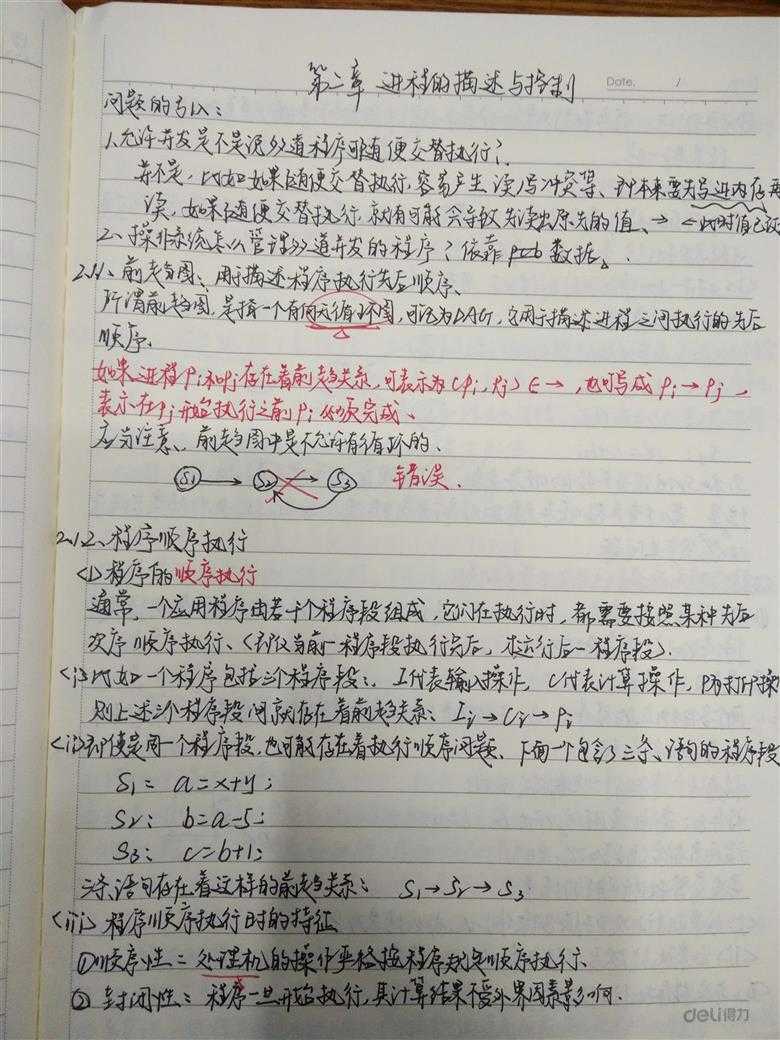 第二章 进程的描述与控制
Date. /
问题的引入：
1、允许并发是不是说多道程序可随便交替执行？
并不是，比如如果随便交替执行，容易产生读写冲突等、即本来要先写进内存再
读，如果随便交替执行，就有可能会导致先读出原先的值、→ ←此时值已
2、操作系统怎么管理多道并发的程序？依靠pcb数据。
2.1.1、前趋图：用于描述程序执行先后顺序、
所谓前趋图，是指一个有向无循环图，可记为DAG，它用于描述进程之间执行的先后
顺序、
如果进程Pi和Pj存在着前趋关系，可表示为（Pi，Pj）∈→，也可写成 Pi→Pj，
表示在Pj开始执行之前Pi必须完成、
应当注意、前趋图中是不允许有循环的、
S1 S2 S3 错误、
2.1.2、程序顺序执行
<1>程序的顺序执行
通常，一个应用程序由若干个程序段组成，它们在执行时，都需要按照某种先后
次序顺序执行、（即仅当前一程序段执行完后，才运行后一程序段）、
<i>比如一个程序包括三个程序段：、I代表输入操作，C代表计算操作，P为打印操
则上述三个程序段间就存在着前趋关系：Ii→Ci→Pi
<ii>即使是同一个程序段，也可能存在着执行顺序问题、下面一个包含了三条、语句的程序段
S1： a=x+y；
S2： b=a-5；
S3： c=b+1；
三条语句存在着这样的前趋关系： S1→S2→S3
<iii>程序顺序执行时的特征
①顺序性：处理机的操作严格按程序规定顺序执行、
②封闭性：程序一旦开始执行，其计算结果不受外界因素影响．
deli得力